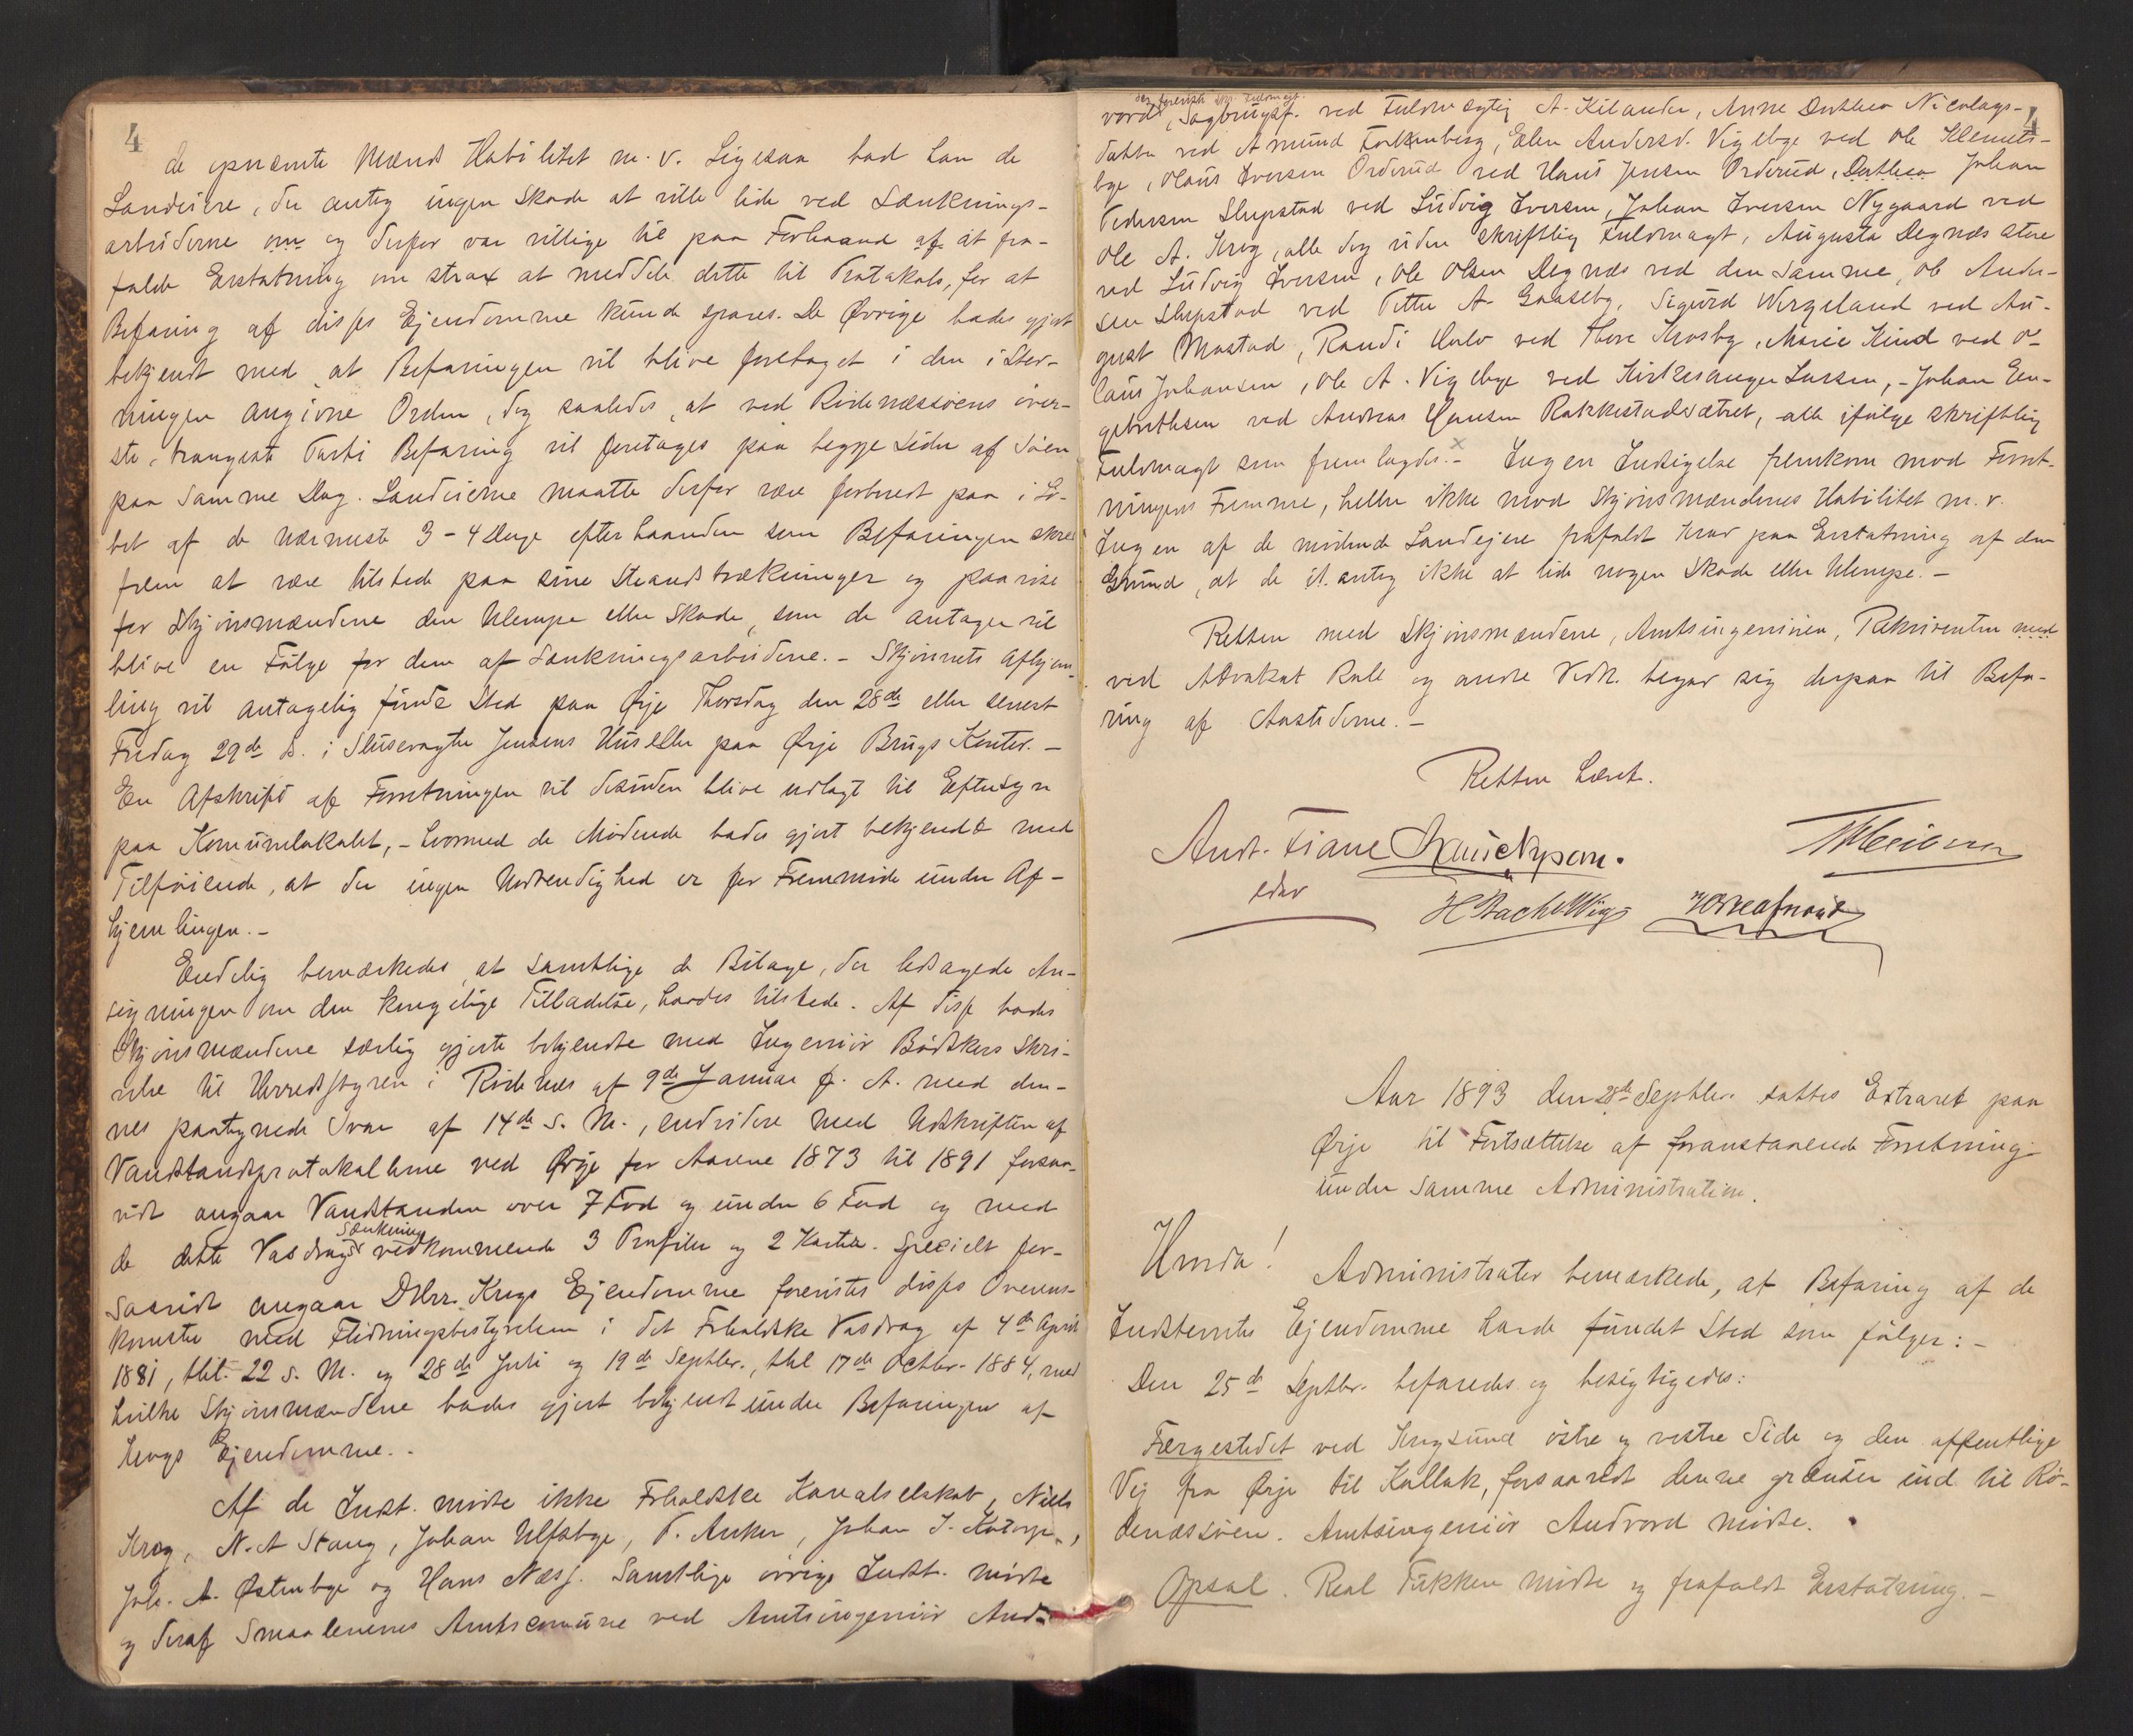 4
de opnævnte Mænds Habilitet m. v. Ligesaa bad han de
Landeiere, der antog ingen Skade at ville lide ved Sænknings-
arbeiderne om og derfor var villige til paa Forhaand af at fra-
falde Erstatning om strax at meddele dette til Protokols, for at
Befaring af disses Ejendomme kunde spares. De Øvrige bades gjort
bekjendt med, at Befaringen vil blive foretaget i den i Stev-
ningen angivne Orden, dog saaledes, at ved Rødenæssøens øver-
ste, trangeste Parti Befaring vil foretages paa begge Sider af Søen
paa Samme Dag. Landeierne maatte derfor være forberedt paa i Lø-
bet af de nærmeste 3 - 4 Dage efterhaanden som Befaringen skred
frem at være tilstede paa sine Strandstrækninger og paavise
for Skjønsmændene den Ulempe eller Skade, som de antager vil
blive en Følge for dem af Sænkningsarbeiderne. - Skjønnets Afhjem-
ling vil antagelig finde Sted paa Ørje Thorsdag den 28de eller senest
Fredag 29de ds. i Slusevogter Jensens Hus eller paa Ørje Brugs Kontor. -
En Afskrift af Forretningen vil desuden blive udlagt til Eftersyn
paa Komunelokalet, - hvormed de Mødende bades gjort bekjendt med
Tilføiende, at der ingen Nødvendighed er for Fremmøde under Af-
hjemlingen. -
Endelig bemærkedes, at samtlige de Bilage, der ledsagede An-
søgningen om den kongelige Tilladelse, havdes tilstede. Af disse bades
Skjønsmændene særlig gjorte bekjendte med Ingeniør Bødtkers Skri-
velse til Herredsstyren i Rødenæs af 9de Januar f. A. med den-
nes paategnede Svar af 14de s. M., endvidere med Udskriften af
Vandstandsprotokollerne ved Ørje for Aarene 1873 til 1891 forsaa-
vidt angaar Vandstanden over 7 Fod og under 6 Fod og med
de dette Vasdrags Sænkning vedkommende 3 Profiler og 2 Karter. Specielt for-
saavidt angaar DHrr. Krogs Ejendomme forevistes disses Overens-
komster med Flødningsbestyrelsen i det Fredriksh. Vasdrag af 4de April
1881, thl. 22 s. M. og 28de Juli og 19de Septbr., thl 17de Octbr. 1884, med
hvilke Skjønsmændene bades gjort bekjendt under Befaringen af
Krogs Ejendomme. -
Af de Indst. mødte ikke Kanalselskab, Niels
Krog, N. A Stang, Johan Ulfsbye, P. Anker, Johan J.
Joh. A. Østenbye og Hans Næss. Samtlige øvrige Indst. mødte
og deraf Smaalenenes Amtscomune ved Amtsingeniør And-
4
vord, Sagbrugsf. ved Fuldmægtig A. Kilander, Anne Dorthea Nicolays-
datter ved Amund Falkenberg, Elen Andersd. Vigebye ved Ole Klemets-
bye, Olaus Iversen Orderud ved Hans Jensen Orderud, Dorthea Johan
Pedersen Slupstad ved Ludvig Iversen, Johan Iversen Nygaard ved
Ole A. Krog, alle dog uden skriftlig Fuldmagt, Augusta Degnæs
ved Ludvig Iversen, Ole Olsen Degnæs ved den Samme, Ole Ander-
sen Slupstad ved Petter A. Gaaseby, Sigurd Wergeland ved Au-
gust Mastad, Randi Holo ved Thore Krosby, Marie Kind ved O-
laus Johansen, Ole A. Vigebye ved Kirkesanger Larsen, - Johan En-
gebretsen ved Andreas Hansen Rakkestadsætret, alle ifølge skriftlig
Fuldmagt som fremlagdes. - Ingen Indsigelse fremkom mod Forret-
ningens Fremme, heller ikke mod Skjønsmændenes Habilitet m. v.
Ingen af de mødende Landejere frafaldt Krav paa Erstatning af den
Grund, at de antog ikke at lide nogen Skade eller Ulempe. -
Retten med Skjønsmændene, Amtsingeniøren, Rekvirenten med
ved Advokat Roll og andre Vedk. begav sig derpaa til Befa-
ring af Aastederne. -
Retten hævet.
Aar 1893 den 28de Septbr. sattes Extraret paa
Ørje til Fortsættelse af foranstaaende Forretning
under samme Administration.
Hvorda!
Administrator bemærkede, at Befaring af de
Indstevntes Ejendomme havde fundet Sted som følger: -
Den 25de Septbr. befaredes og besigtigedes:
Færgestedet ved Krogsund østre og vestre Side og den offentlige
Vej fra Ørje til Kallak, forsaavidt denne grænder ind til Rø-
denæssøen. Amtsingeniør Andvord mødte.
Opsal. Real Tukken mødte og frafaldt Erstatning. -